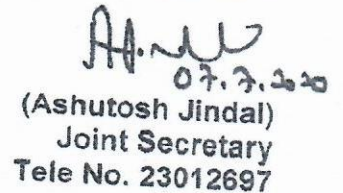 07.7.2020
(Ashutosh Jindal)
Joint Secretary
Tele No. 23012697